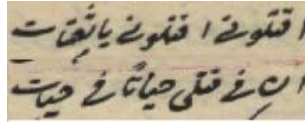 اقتلونی اقتلونی یا ثقات
ان فی قتلی حیاتا فی حیات